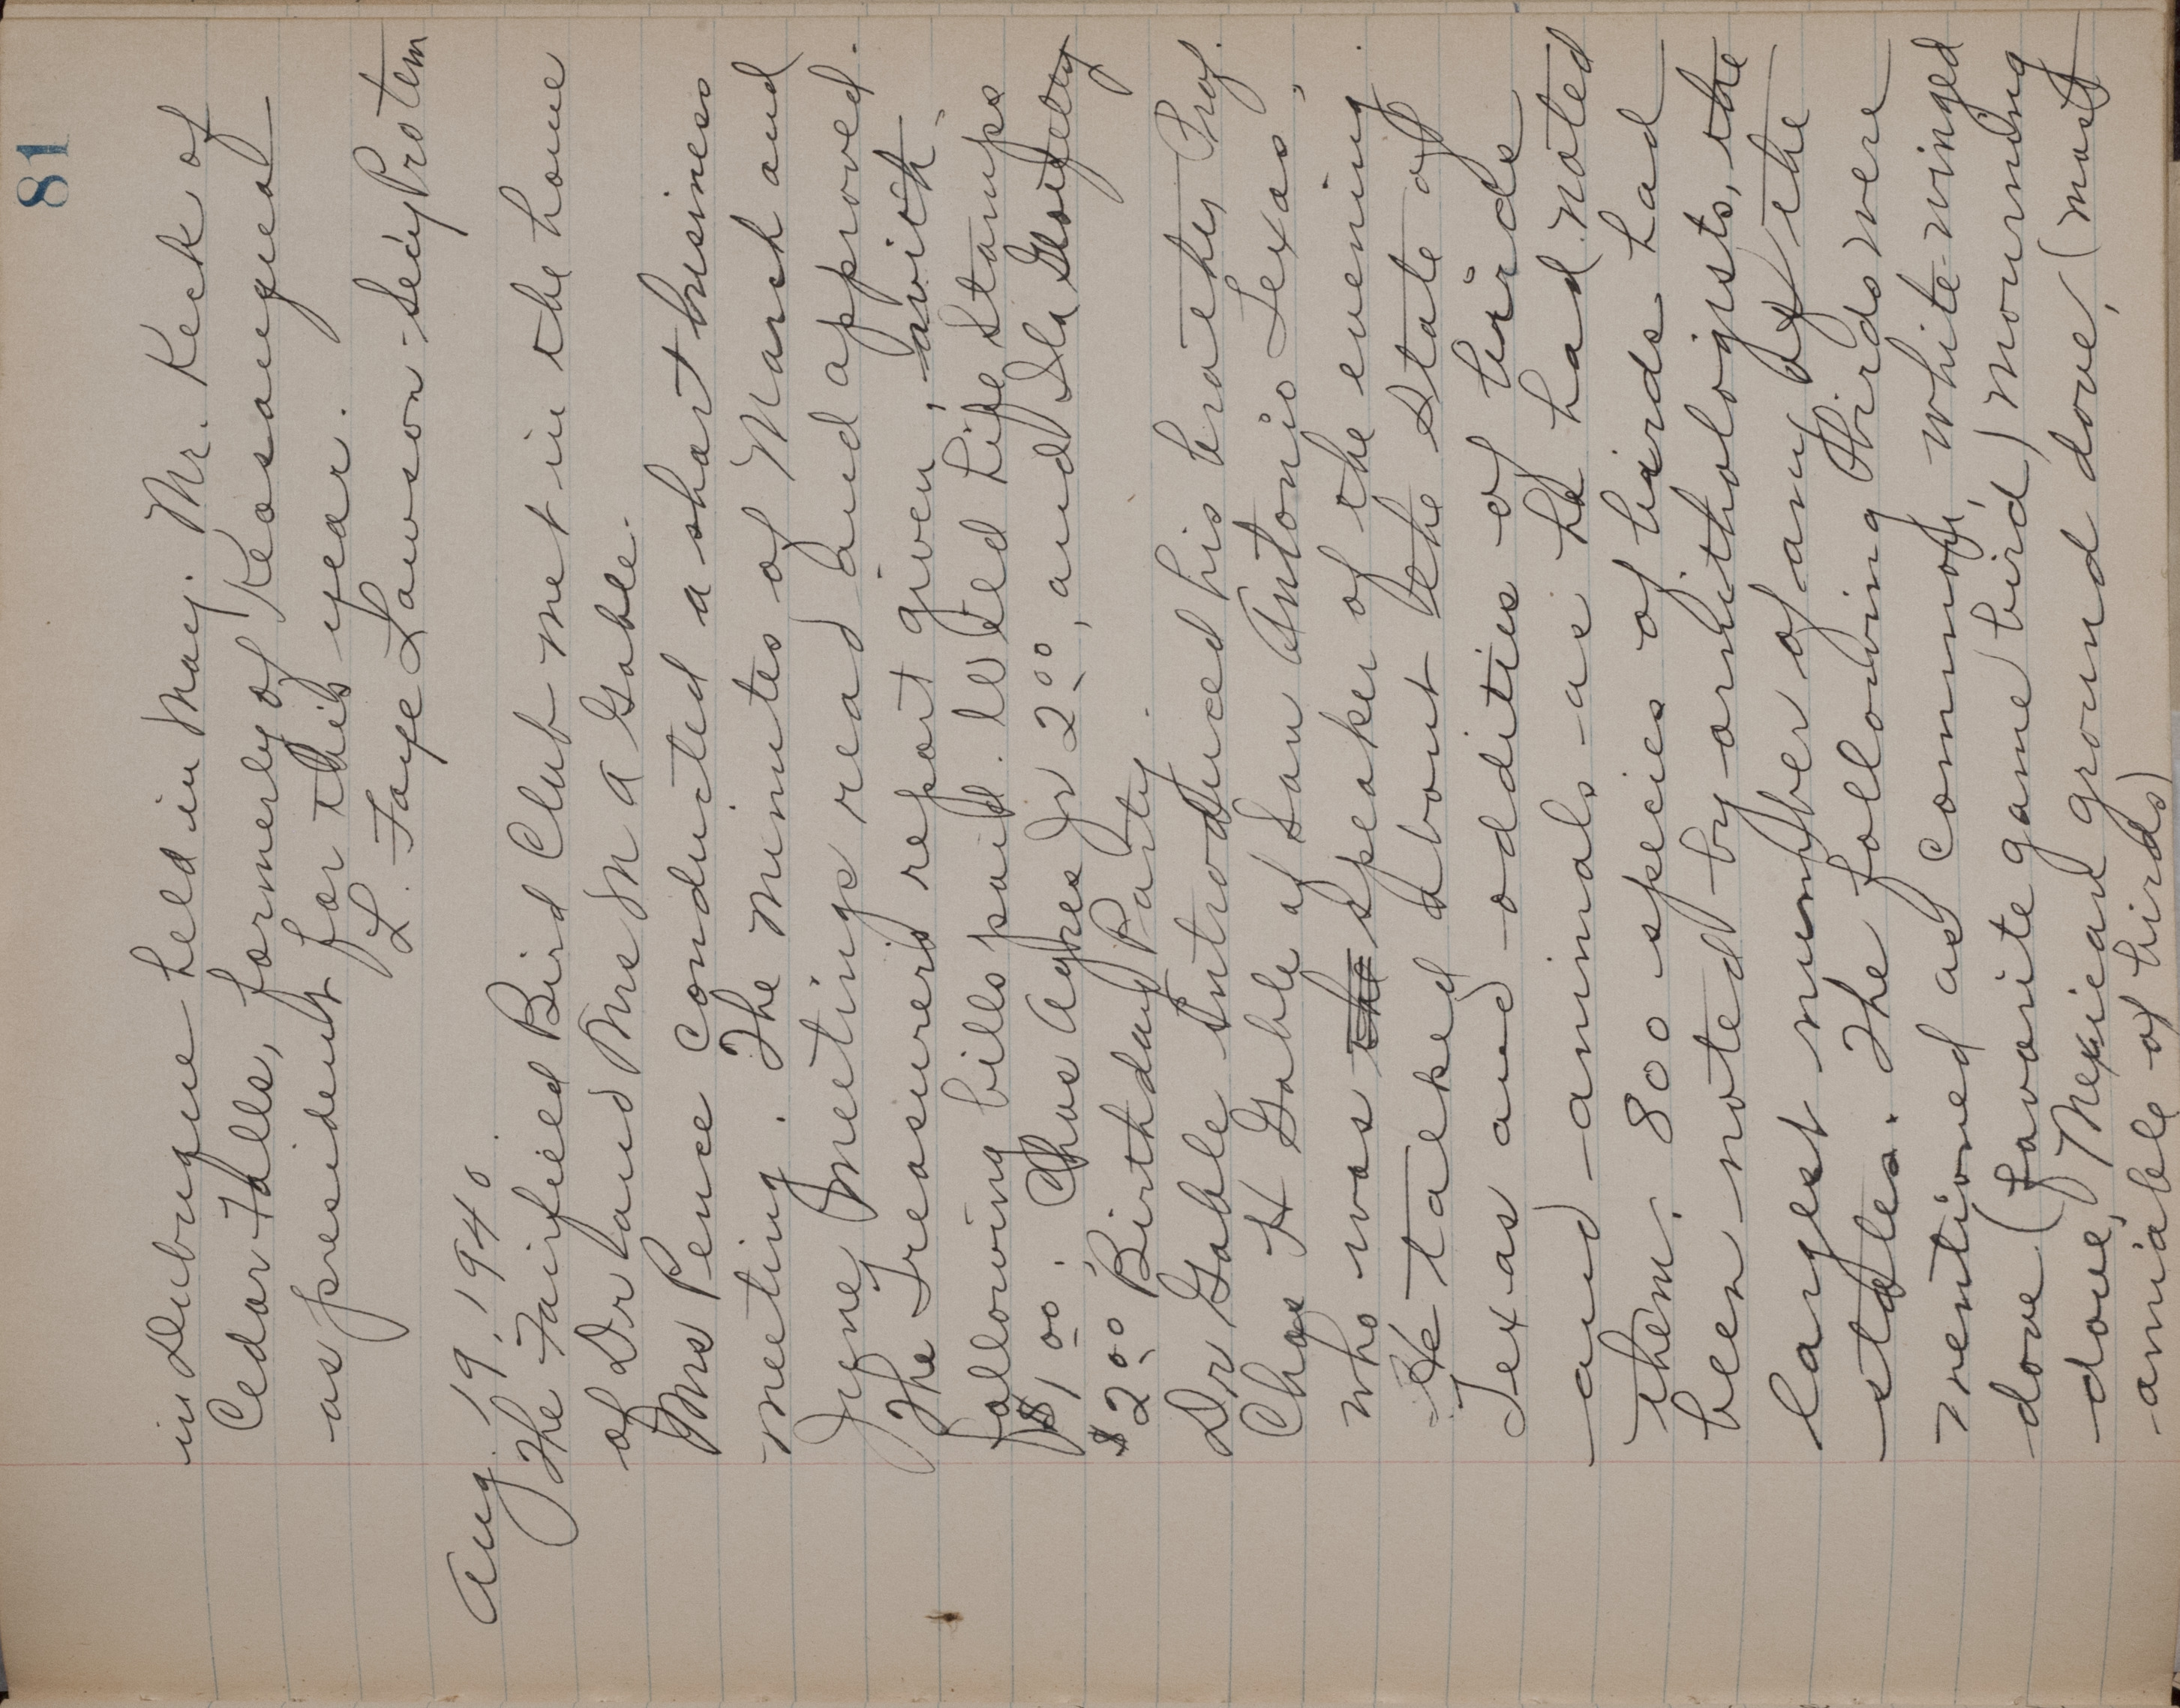 81
in Dubuque held in May. Mr. Keck of
Cedar Falls, formerly of Keosauqua
as president for this year.
L. Faye Lawson - Sec'y Protem
Aug. 19, 1940.
The Fairfield Bird Club met in the home
of Dr and Mrs M A Gable.
Mrs Pence conducted a short business
meeting. The minutes of March and
June meetings read and approved.
The Treasurers report given, with
following bills paid. Wild Life Stamps
$1.00. Chas Agnes Jr 2.00, and Ida
$2.00 Birthday Party.
Dr Gable introduced his brother Prof.
Chas H Gable of San Antonio Texas,
who was the speaker of the evening.
He talked about the State of
Texas and oddities of birds
and animals - as he had noted
them. 800 species of birds had
been noted by ornithologists, the
largest number of any of the
states. The following birds were
mentioned as common, white-winged
dove (favorite game bird) mourning
dove, Mexican ground dove, (most
amiable of birds)